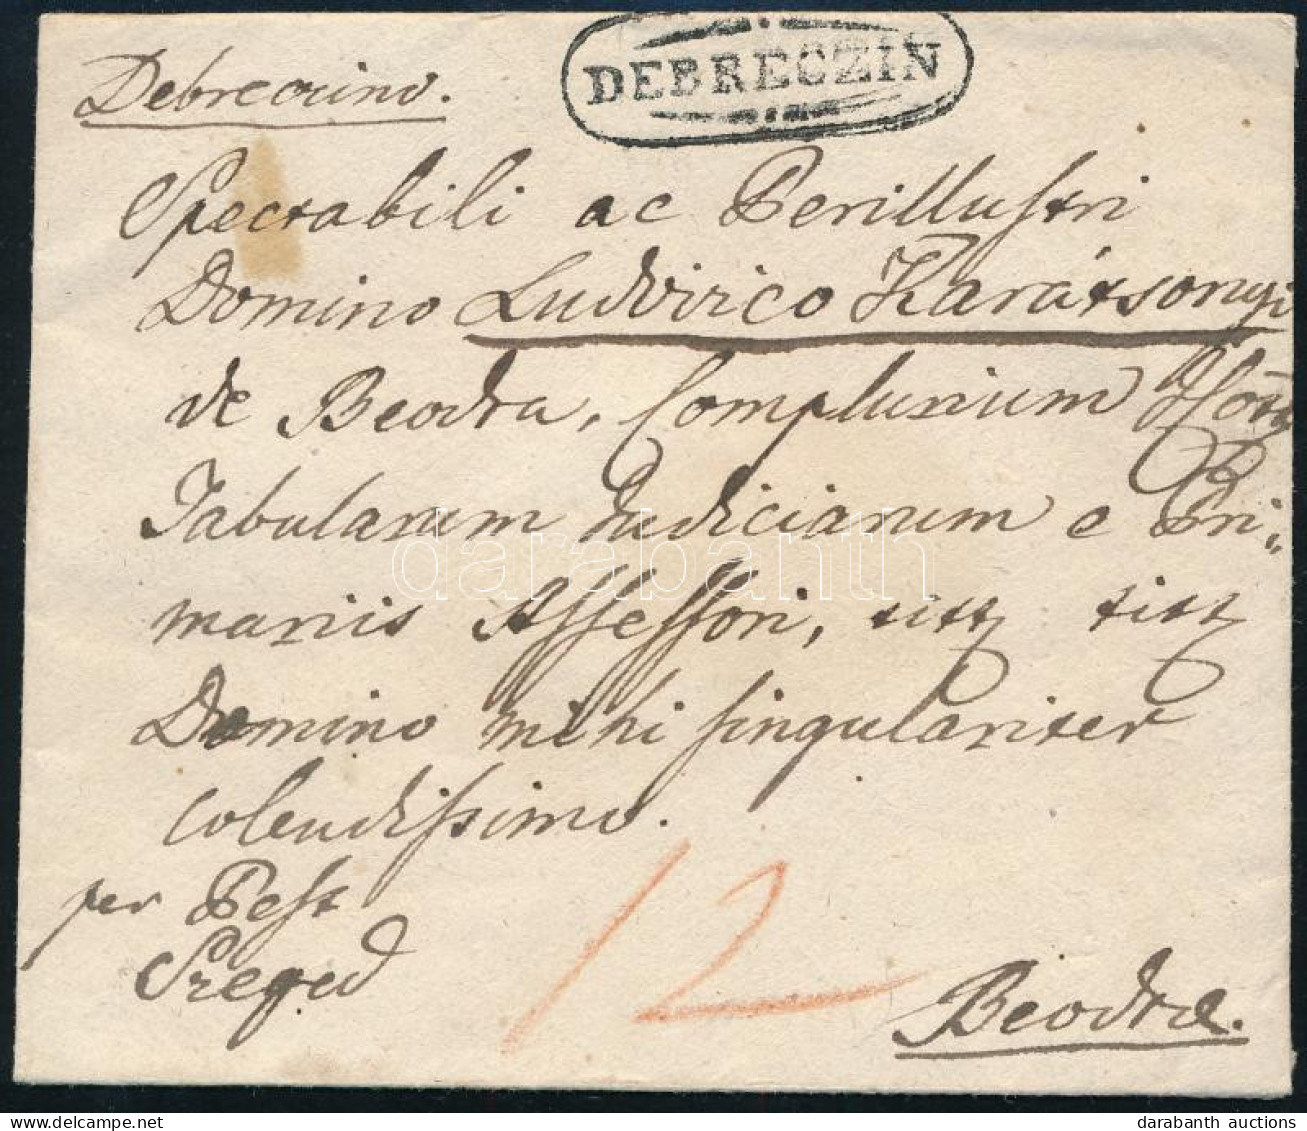 DEBRECZIN
Debreczino.
Spectabili ac Perillustri
Domino Ludovico Karátsonyi
de Beodra, Complurium
Tabularum Judiciarum e Pri„
mariis Assessori, titt titt
Domino mihi singulariter
colendissimo.
per Pest
Szeged
12
Beodrae.
darabanth
darabanth auctions